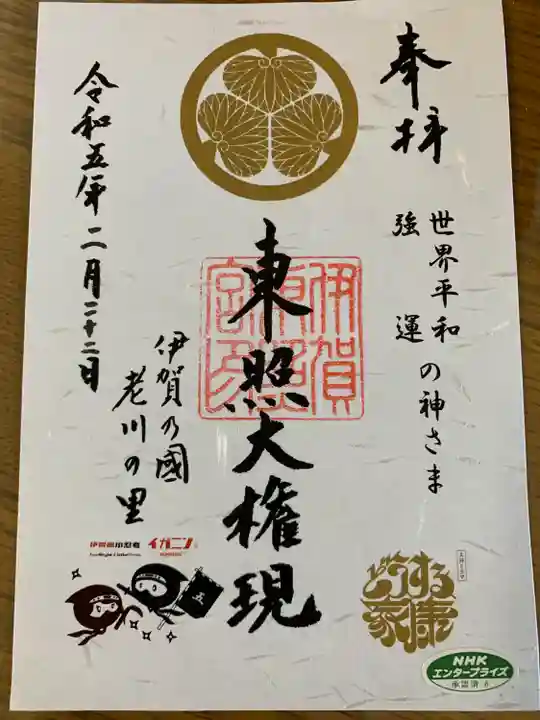 奉拝
世界平和
強運
の神さま
東照大権現
伊賀
東照
宮
伊賀乃國
老川の里
令和五年二月二十二日
伊賀
小忍者
イガニン
五
どうする
家康
NHK
エンタープライズ
承認済